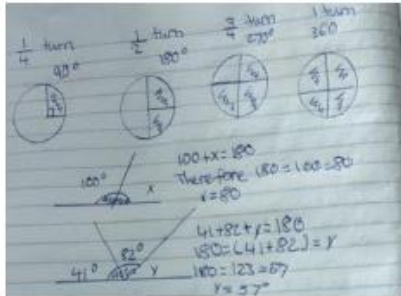 1/4 turn
90°
1/2 turn
180°
3/4 turn
270°
1 turn
360
100°
x
100+x=180
Therefore 180-100=80
x=80
41°
82°
y
41+82+y=180
180-(41+82)=y
180-123=57
y=57°